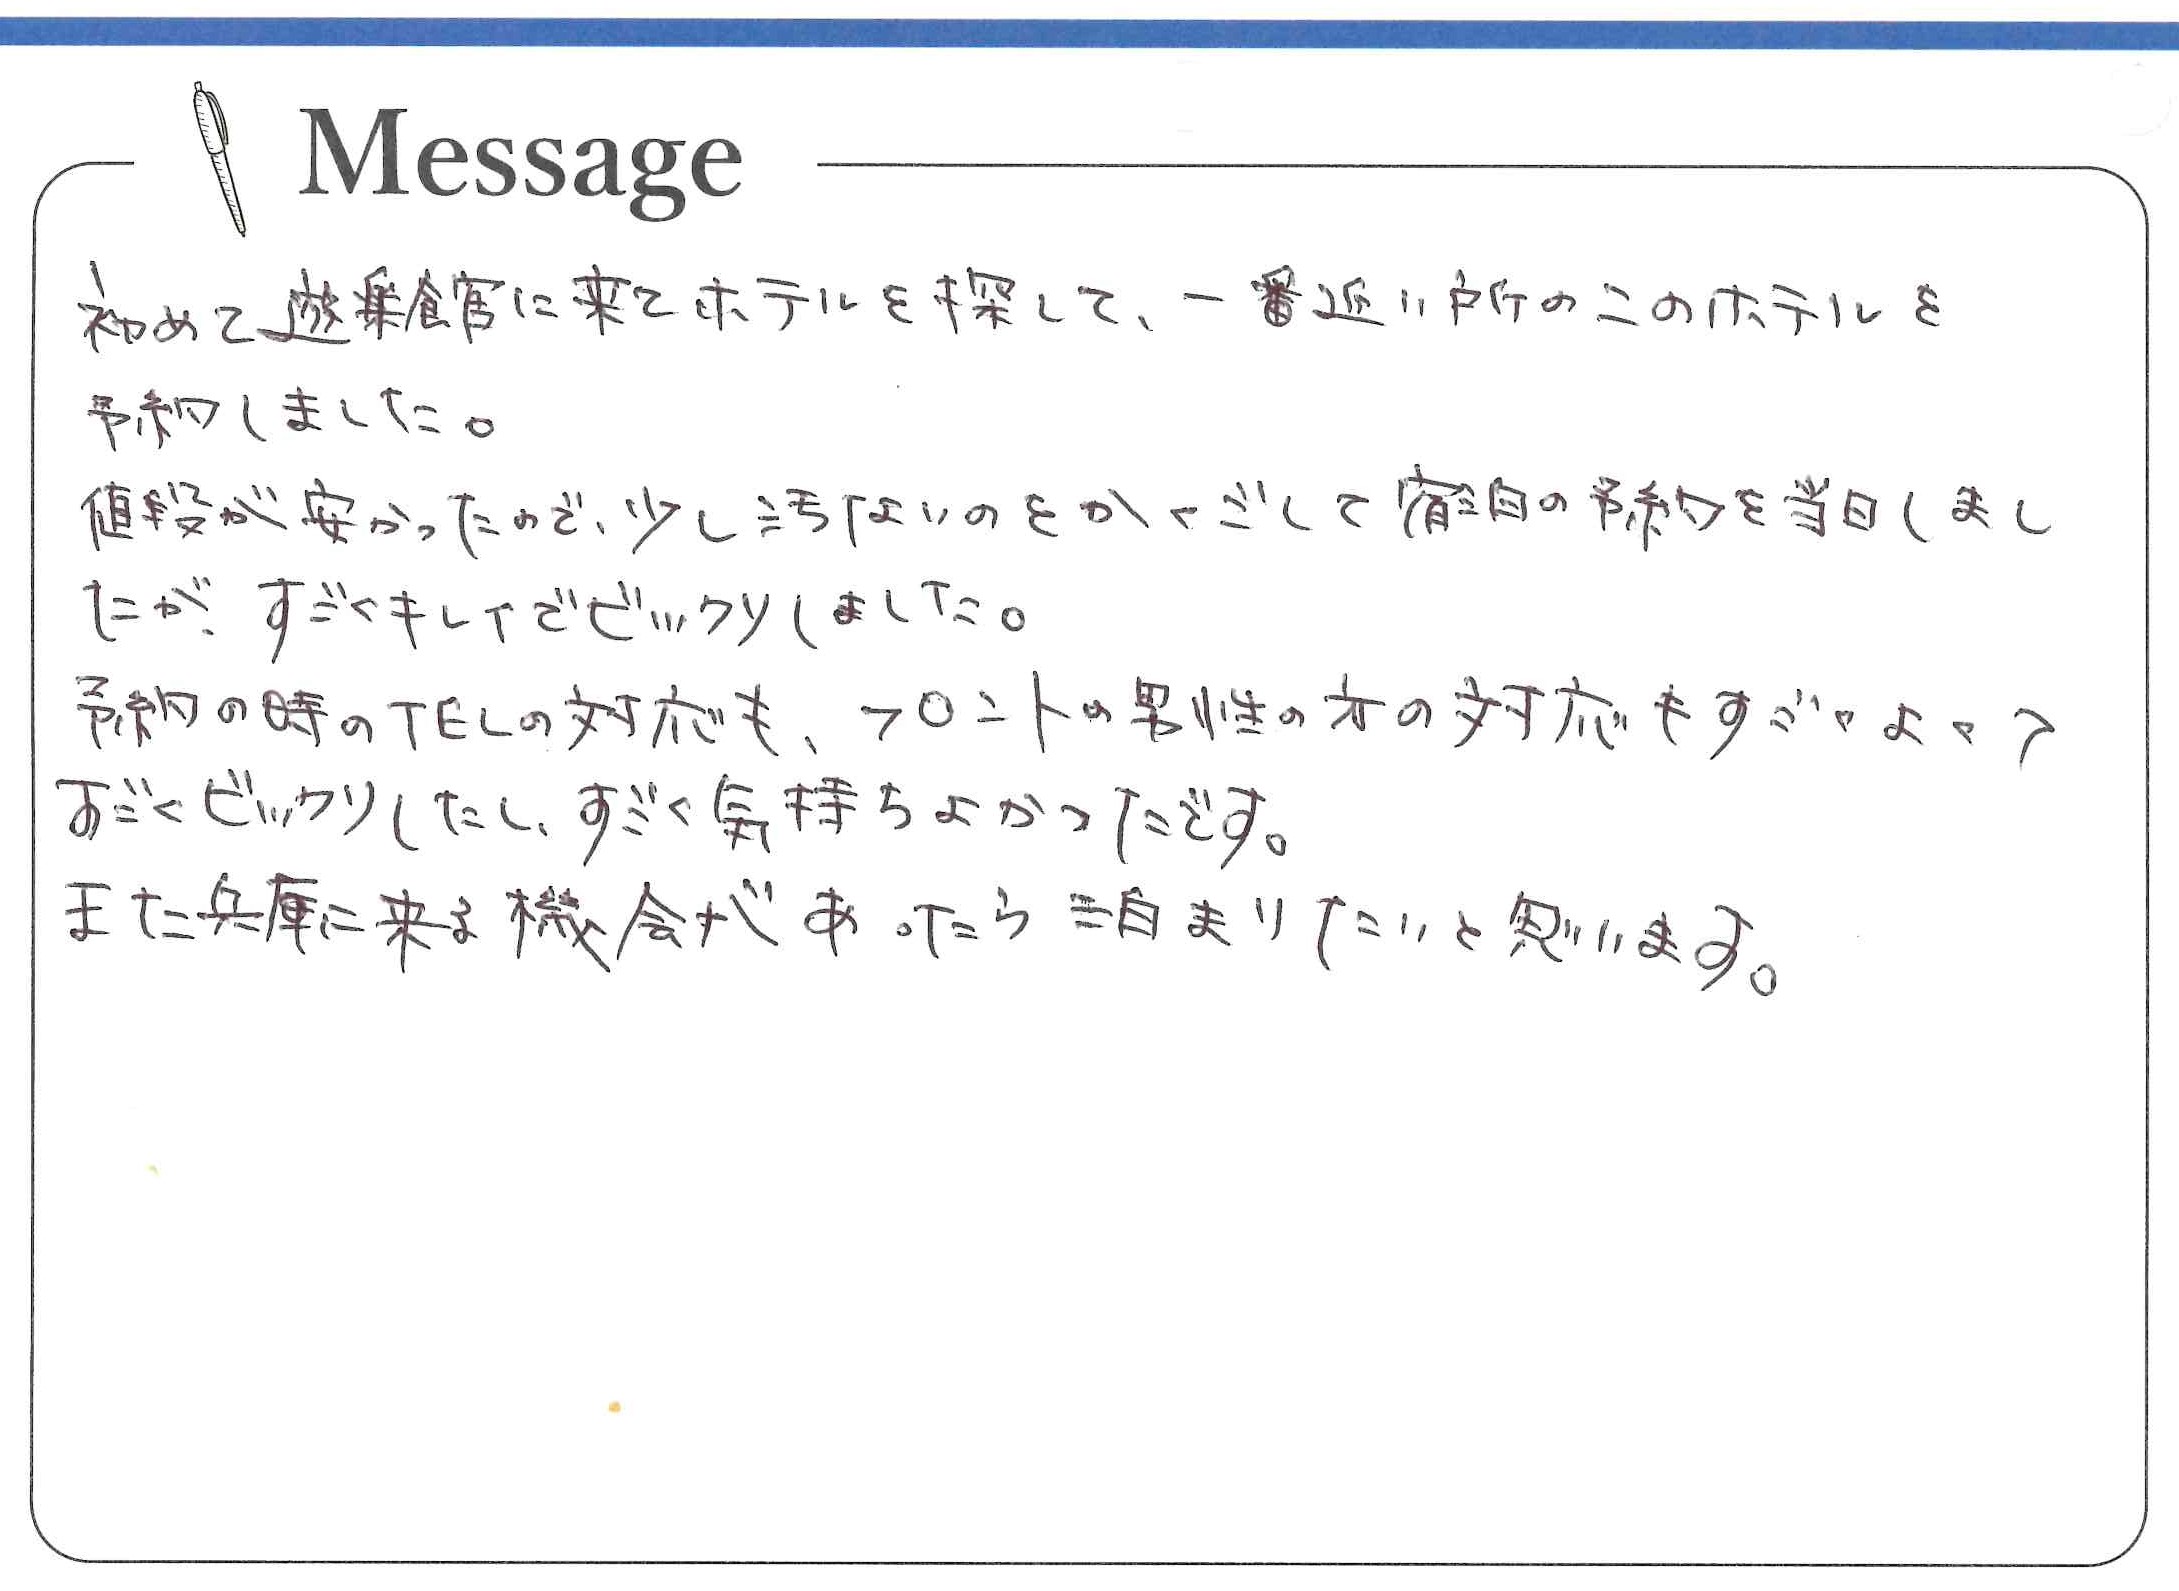 Message
初めて遊楽館に来てホテルを探して、一番近い所のこのホテルを
予約しました。
値段が安かったので、少し汚ないのをかくごして宿泊の予約を当日しまし
たが、すごくキレイでビックリしました。
予約の時のTELの対応も、フロントの男性の方の対応もすごくよくて
すごくビックリしたし、すごく気持ちよかったです。
また兵庫に来る機会があったら泊まりたいと思います。